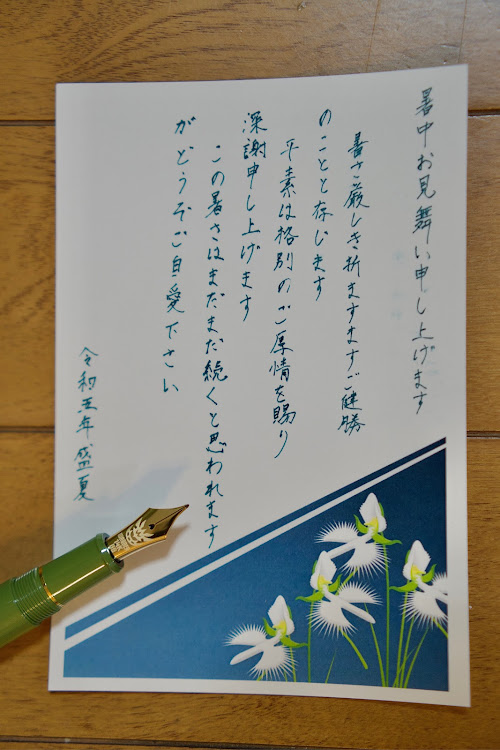 暑中お見舞い申し上げます
暑さ厳しき折ますますご健勝
のことと存じます
平素は格別のご厚情を賜り
深謝申し上げます
この暑さはまだまだ続くと思われます
がどうぞご自愛下さい
令和五年盛夏